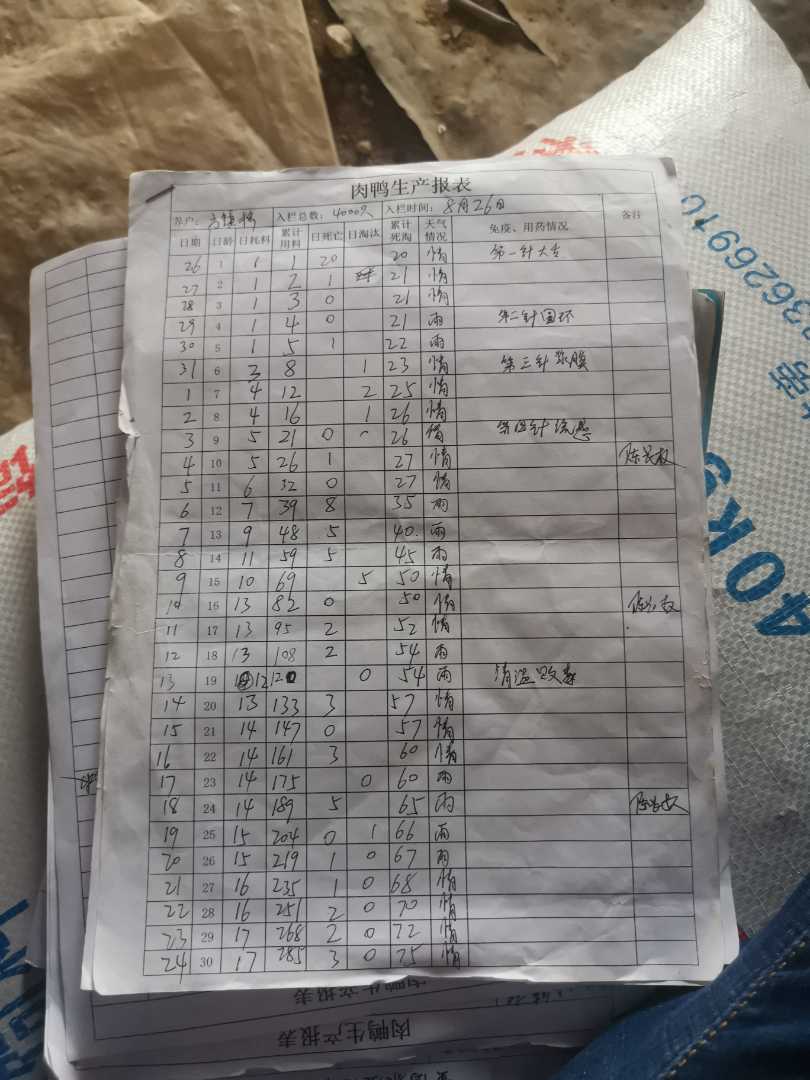 肉鸭生产报表
养户： 入栏总数：4000只 入栏时间：8月26日 备注
日期 日龄 日耗料 累计用料 日死亡 日淘汰 累计死淘 天气情况 免疫、用药情况
26 1 1 1 20 20 情 第一针大舌
27 2 1 2 1 21 情
28 3 1 3 0 21 情
29 4 1 4 0 21 雨 第二针
30 5 1 5 1 22 雨
31 6 3 8 1 23 情 第三针浆膜
1 7 4 12 2 25 情
2 8 4 16 1 26 情
3 9 5 21 0 26 情 第四针流感
4 10 5 26 1 27 情
5 11 6 32 0 27 情
6 12 7 39 8 35 雨
7 13 9 48 5 40 雨
8 14 11 59 5 45 雨
9 15 10 69 5 50 情
10 16 13 82 0 50 情
11 17 13 95 2 52 情
12 18 13 108 2 54 雨
13 19 12 120 0 54 雨
14 20 13 133 3 57 情
15 21 14 147 0 57 情
16 22 14 161 3 60 情
17 23 14 175 0 60 雨
18 24 14 189 5 65 雨
19 25 15 204 0 1 66 雨
20 26 15 219 1 0 67 雨
21 27 16 235 1 0 68 情
22 28 16 251 2 0 70 情
23 29 17 268 2 0 72 情
24 30 17 285 3 0 75 情
肉鸭生产报表
肉鸭生产报表
3626910
40K9